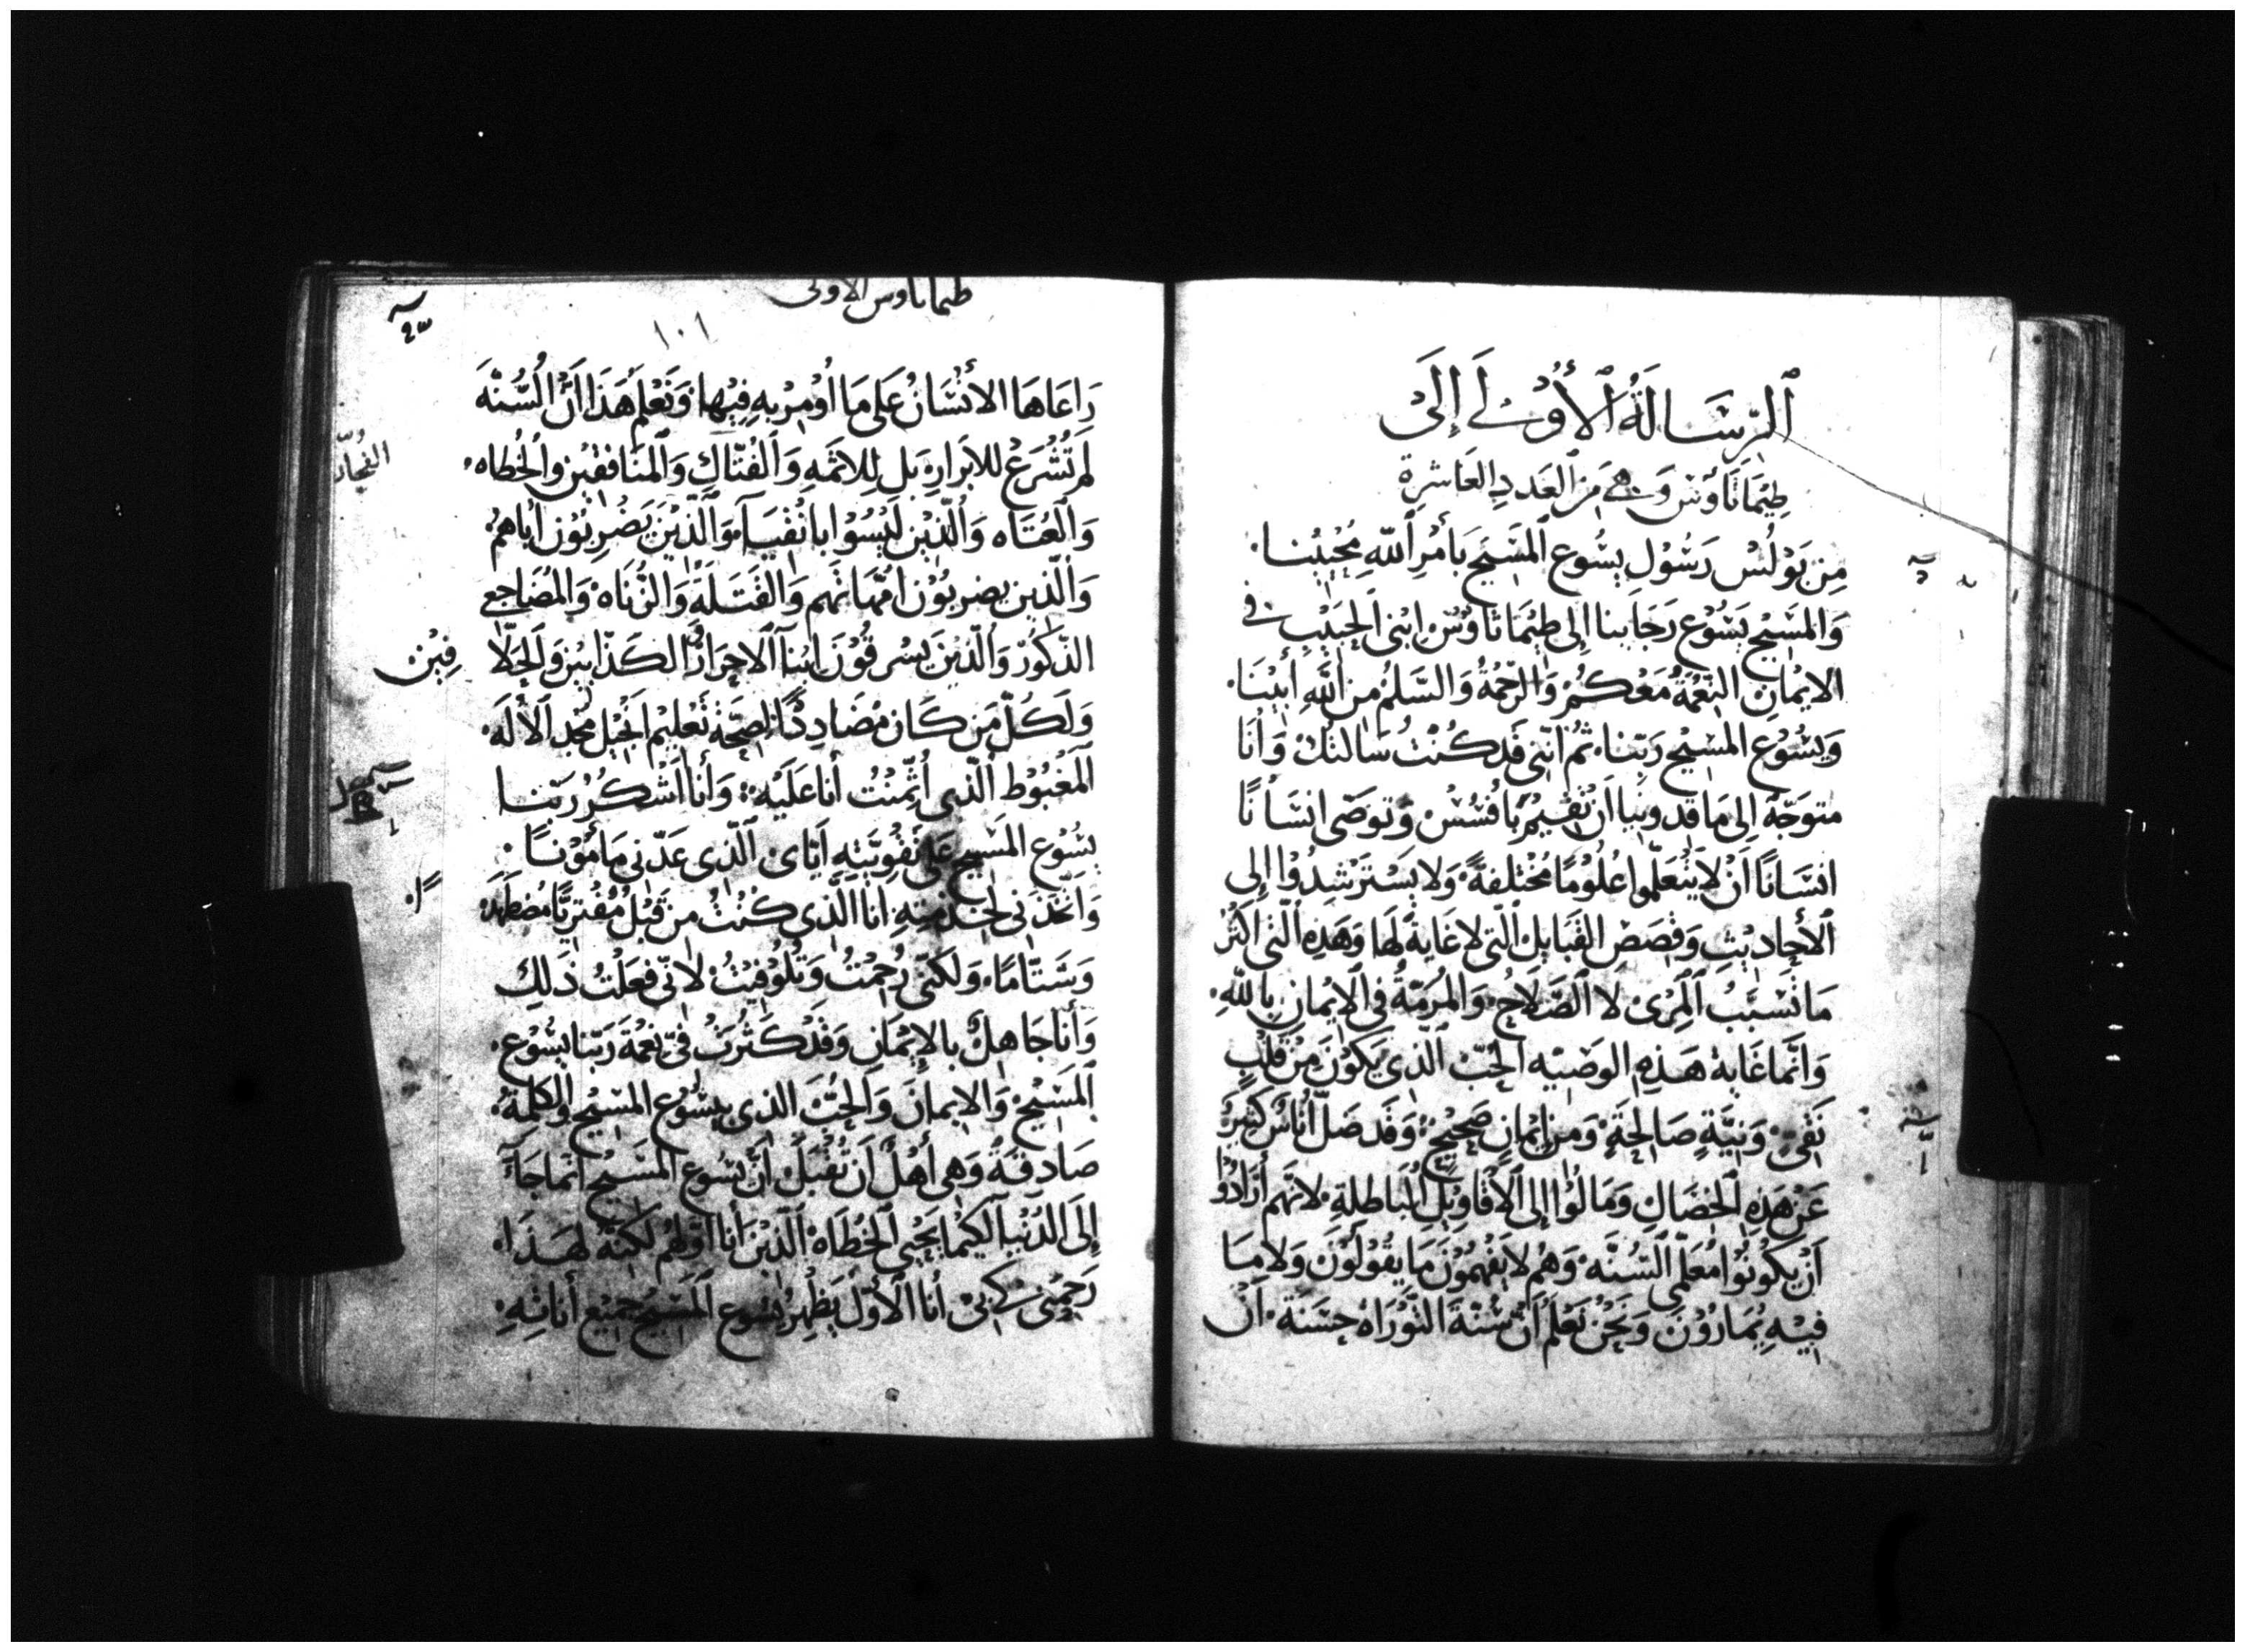 الرِّسَالَةُ ٱلْأُوْلَى إِلَىْ
طِيْمَاتَاوُس وَهِيَ مِنَ ٱلعَددِ العَاشرة
مِن بَوْلُسْ رَسُوْلِ يِسُوع ٱلمَسِيح بَأَمْرِ ٱللّهِ مُحْيِيْنا.
وَالمَسِيْحِ يَسُوْع رَجَايينا إِلى طِيْمَاتَاوُسْ ابْنى ٱلحَبِيْبِ في
الايْمانِ النِّعْمَةُ مَعْكُمْ وَالرَّحْمَةُ وَالسَّلمُ من ٱللَّهِ أَبِيْنَا.
وَيِسُوْع المَسِيْح رَبِّنا. ثُمْ انّني قَد كُنْتُ سَالتكَ وَأنَا
متوَجّهٌ إلى مَاقدونيا أنْ تُقيْمَ بَافسُسْ وَتوَصّى انسَانًا
انسَانًا أَنْ لَا يَتْعَلّموا عُلُوْمًا مُخْتلفةً. وَلا يَسْترْشِدُوْا إِلى
ٱلأحاديْثِ وَقصَصِ القَبَايل الّتى لا غَايةَ لَهَا وَهَذِهِ الّتى اكثرُ
مَا تُسَبّبُ المِرْىَ لا الصَّلَاحُ. وَالمُرمّةُ فى الايْمانِ بِاللهِ.
وَانّما غَايةُ هَذِهِ الوَصيّه الحُبّ الّذى يَكوْنَ مِنْ قلْبٍ
نَقىّ. وَنِيَّةٍ صَالِحَةٍ وَمن إيْمانٍ صَحِيْحٍ. وَقَد ضَلّ أُنَاسٌ كثيرُ
عَنْ هَذِهِ الخصَالِ وَمَالُوْا إِلى ٱلأَقَاوِيْلِ البَاطلةِ. لانّهم أرَادُوْا
أنْ يَكُوْنُوْا مُعَلّمى السُّنَّه. وَهُمْ لايَفْهَمُوْنَ مَا يَقوْلُوْنَ وَلا مَا
فِيهِ يُمَارُوْنَ وَنَحْنُ نَعْلَمُ أَنّ سُنّةَ التَّوْرَاه حسَنَةٌ. انْ
طيماتاوس الاولى
١٠١
رَاعَاهَا الانْسَانُ عَلى مَا اُوْمِرْ بِهِ فِيْهَا. وَنَعْلَمُ هَذَا أَنّ السُّنّهَ
لم تُشْرَعْ للابَرارِ. بَل لِلاثَمةِ وَٱلفُتّاكِ وَٱلمنَافقين والخُطاه.
الفُجّار
وَالعُتَاه وَالّذيْن لَيْسُوْا باتْقيَآء. وَالّذيْنَ يَضْرِبُوْن اباهُمْ.
وَالّذين يضربُوْن امّهَاتهم وَالقَتَلَةِ وَالزُّنَاهْ وَالمُضَاجعي
الذّكُوْرْ وَالّذيْنَ يَسْرقُوْنَ ابْنآ الاحرَارْ وَالكَذّابيْن وَالحَلّا
فيْن
وَلَكُلّ مَن كَان مُضَادِدًا لصِحّةِ تَعْليْم انْجيْل مجْد الاله.
المَغبُوْط الّذى أئْتِمنْتُ أنا عَلَيْه. وَأنا أشْكُرُ ربّنا
يِسُوْع المَسِيْحِ عَلى تقْويَتِهِ ايّاى الّذى عَدّنى مَأمُوْنًا.
وَاتّخذنى لخِدْمَتِهِ انا الّذى كُنْتُ من قَبْلُ مُفْتريًا مُضطَهِد
وَشتّامًا. وَلكنّى رُحِمْتُ وَتُلُوْفيْتُ لانّى فعَلْتُ ذلك
وَأنا جَاهلٌ بالايْمَانِ وَقَدْ كَثُرتْ فىّ نِعْمَةُ رَبّنا يسُوْع.
المَسِيْحْ وَالايمانْ وَالحُبّ الذى بيِسُوْع المسِيْح وَالكلمةُ.
صَادقةٌ وَهى أهْلٌ أنْ تُقْبَلْ أنّ يسُوع المسِيْح انّما جَآء
إِلى الدُنْيا لكيْما يحْيى الخُطاه الّذين أنا اوّلهُمْ لكنّهُ لهَذَا.
رَحِمَنى كى فىْ أنا الأوّل يُظهرُ يسُوع المسِيحُ جمِيْع أناتِهِ.